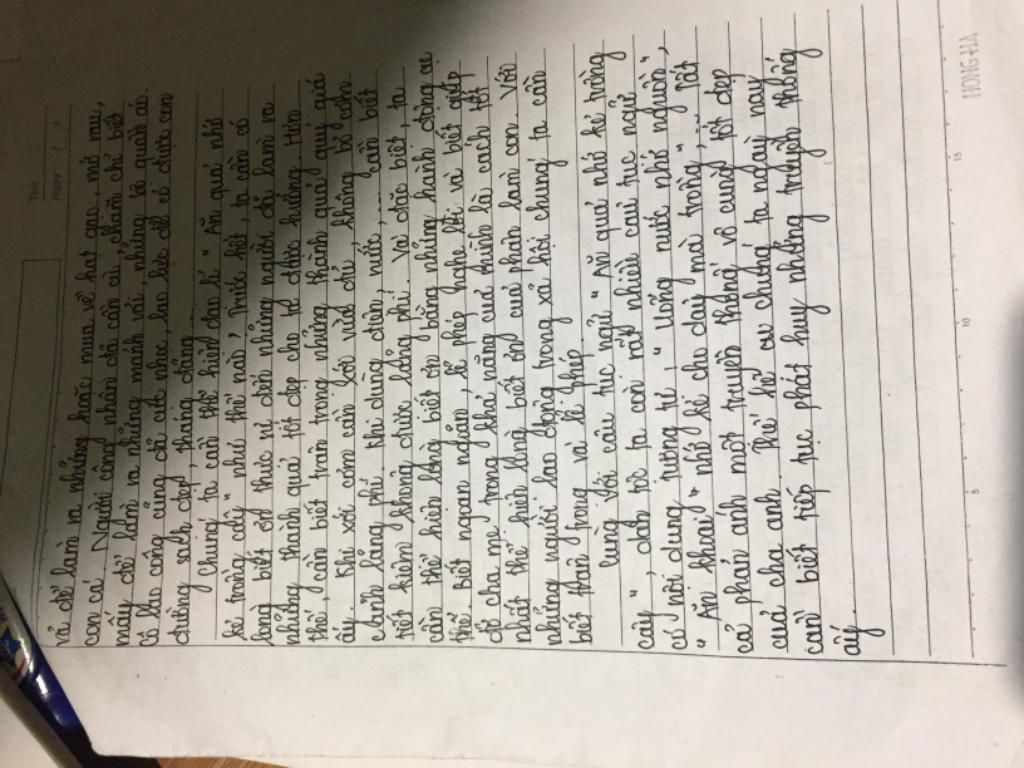 Thứ
Ngày / /
vả để làm ra những hạt mưa về hạt gạo, mớ rau,
con cá. Người công nhân đã cần cù, chăm chỉ biết
mấy để làm ra những mảnh vải, những bộ quần áo.
Cô lao công cũng đã cực nhọc, lao lực để có được con
đường sạch đẹp, thẳng đẵng.
Chúng ta cần thể hiện đạo lí " Ăn quả nhớ
kẻ trồng cây " như thế nào? Trước hết, ta cần có
lòng biết ơn thức vì đến những người đã làm ra
những thành quả tốt đẹp cho ta được hưởng. Hơn
thế, cần biết trân trọng những thành quả quý giá
ấy. Khi xới cơm cần xới vừa đủ không bỏ cơm
canh lãng phí. Khi dùng điện, nước,.... cần biết
tiết kiệm không được lãng phí. Và đặc biệt, ta
cần thể hiện lòng biết ơn bằng những hành động cụ
thể. biết ngoan ngoãn, lễ phép nghe lời và biết giúp
đỡ cha mẹ trong khả năng của mình là cách tốt
nhất thể hiện lòng biết ơn của phận làm con. Với
những người lao động trong xã hội chúng ta cần
biết trân trọng và lễ phép.
Cùng với câu tục ngữ " Ăn quả nhớ kẻ trồng
cây ", dân tộc ta còn rất nhiều câu tục ngữ
có nội dung tương tự : " Uống nước nhớ nguồn",
" Ăn khoai " nhớ kẻ cho dây mà trồng",... Tất
cả phản ánh một truyền thống vô cùng tốt đẹp
của cha anh. Thế hệ chúng ta ngày nay
cần biết tiếp tục phát huy những truyền thống
ấy.
5
10
15
HONG HA